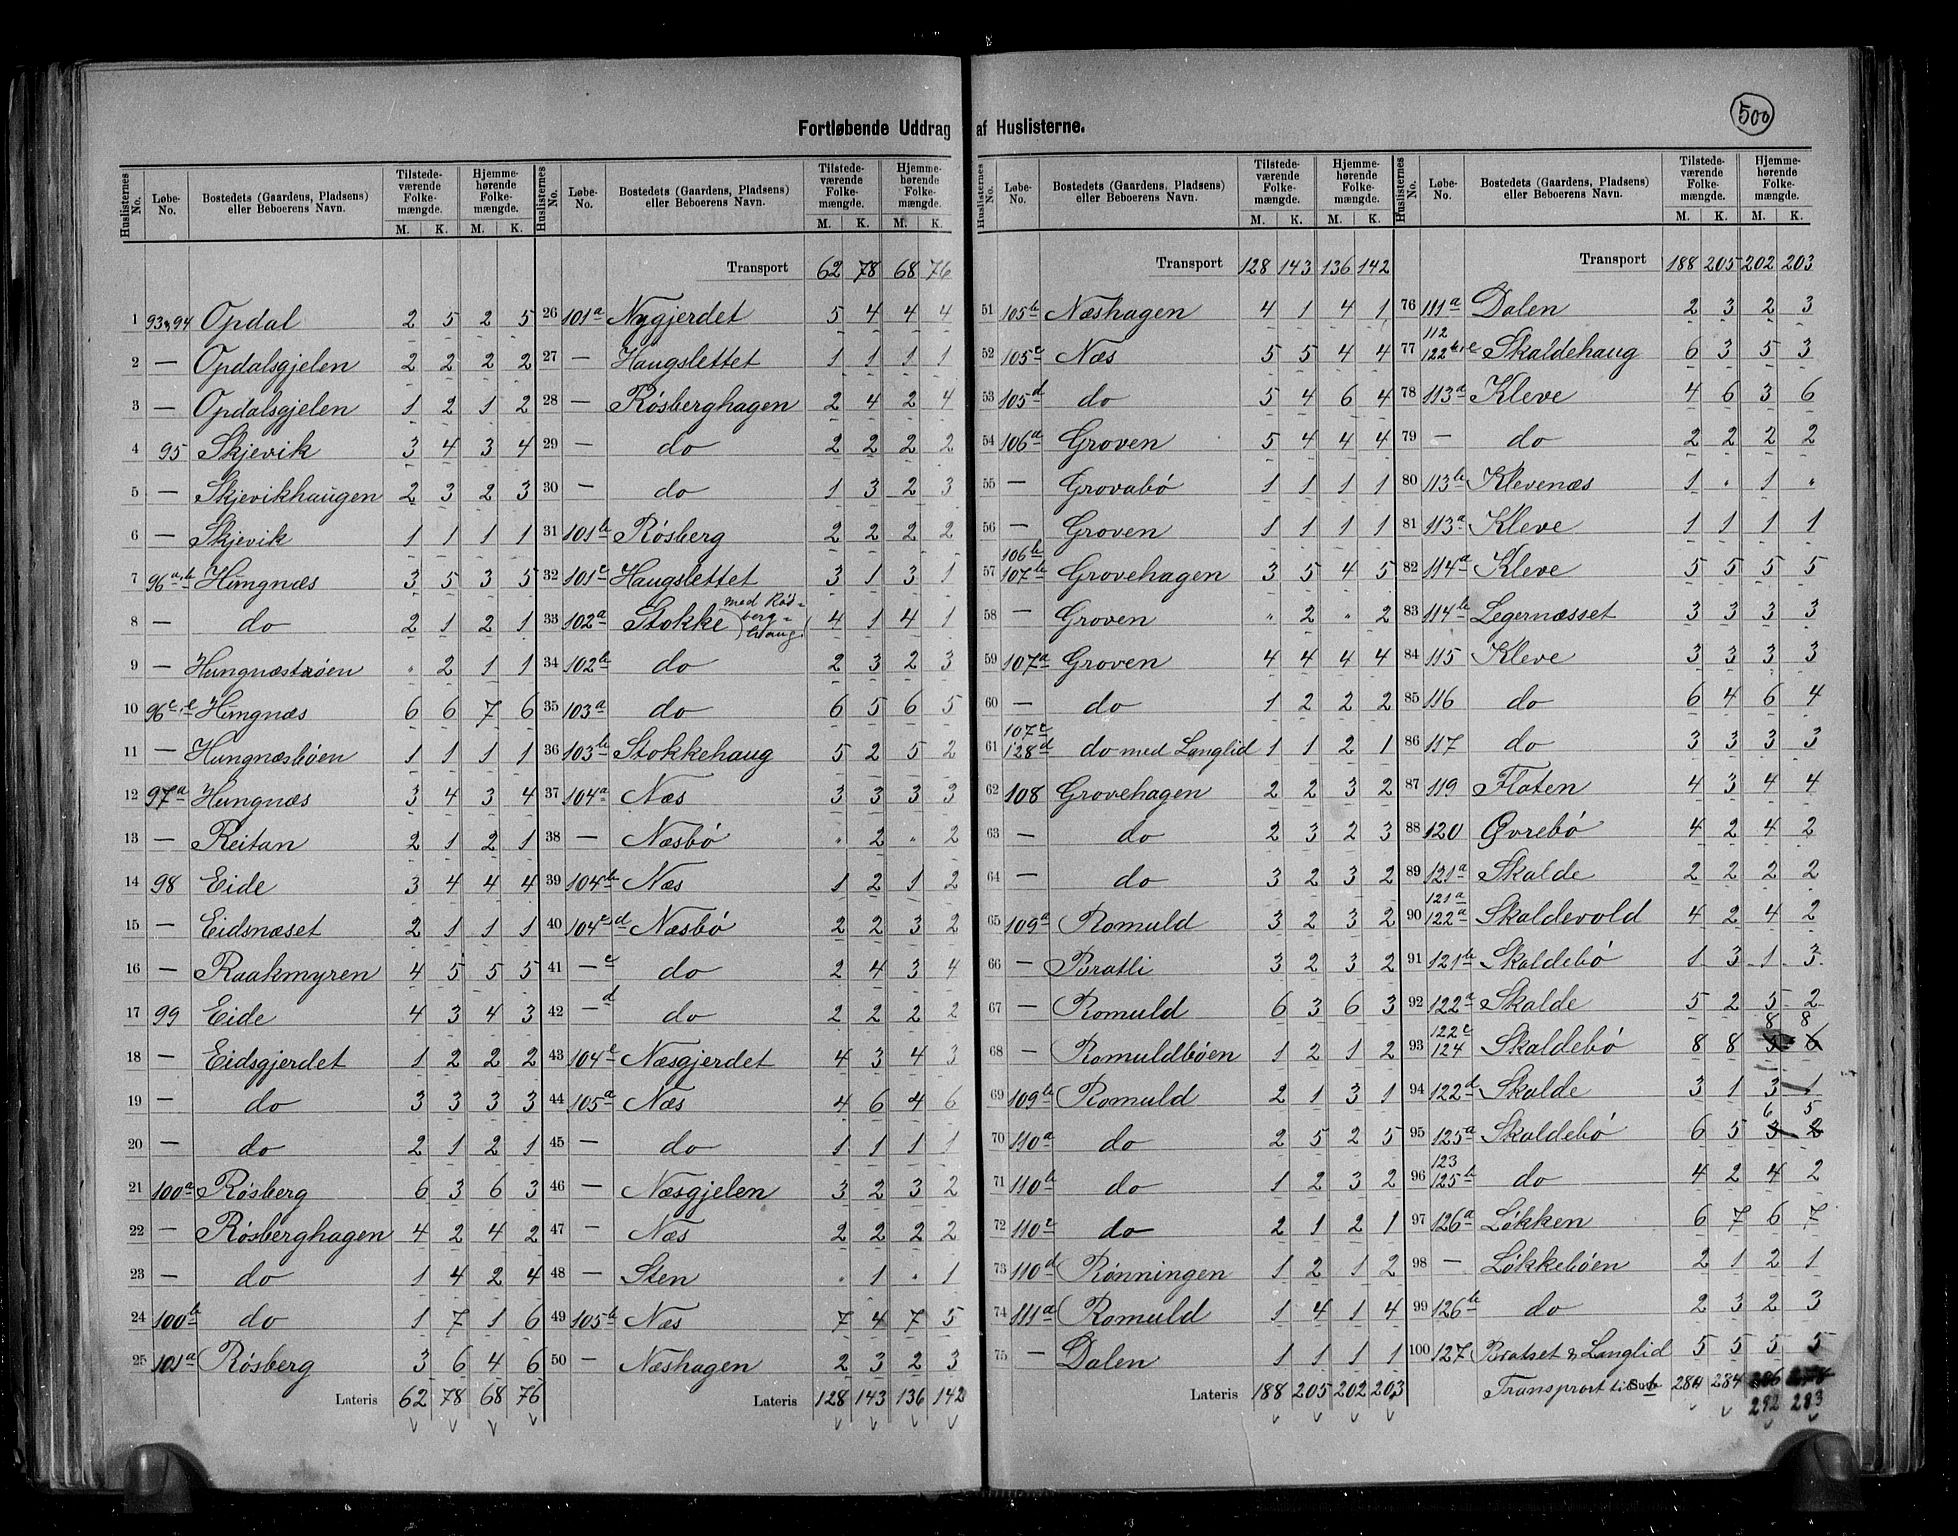 500
Fortløbende Uddrag af Huslisterne.
Huslisternes No. | Løbe-No. | Bostedets (Gaardens, Pladsens) eller Beboerens Navn. | Tilstedeværende Folkemængde. M. K. | Hjemmehørende Folkemængde. M. K.
1 93,94 Opdal 2 5 2 5
2 — Opdalsgjelen 2 2 2 2
3 — Opdalsgjelen 1 2 1 2
4 95 Skjevik 3 4 3 4
5 — Skjevikhaugen 2 3 2 3
6 — Skjevik 1 1 1 1
7 96a,b Hungnæs 3 5 3 5
8 — do 2 1 2 1
9 — Hungnæstrøen " 2 1 1
10 96c,e Hungnæs 6 6 7 6
11 — Hungnæsbøen 1 1 1 1
12 97a Hungnæs 3 4 3 4
13 — Reitan 2 1 2 1
14 98 Eide 3 4 4 4
15 — Eidsnæset 2 1 1 1
16 — Raakmyren 4 5 5 5
17 99 Eide 4 3 4 3
18 — Eidsgjerdet 1 2 2 2
19 — do 3 3 3 3
20 — do 2 1 2 1
21 100a Røsberg 6 3 6 3
22 — Røsberghagen 4 2 4 2
23 — do 1 4 2 4
24 100b do 1 7 1 6
25 101a Røsberg 3 6 4 6
Lateris 62 78 68 76
Huslisternes No. | Løbe-No. | Bostedets (Gaardens, Pladsens) eller Beboerens Navn. | Tilstedeværende Folkemængde. M. K. | Hjemmehørende Folkemængde. M. K.
Transport 62 78 68 76
26 101a Nygjerdet 5 4 4 4
27 — Haugslettet 1 1 1 1
28 — Røsberghagen 2 4 2 4
29 — do 2 2 2 2
30 — do 1 3 2 3
31 101b Røsberg 2 2 2 2
32 101c Haugslettet 3 1 3 1
33 102a Stokke (med Røsberghaug) 4 1 4 1
34 102b do 2 3 2 3
35 103a do 6 5 6 5
36 103b Stokkehaug 5 2 5 2
37 104a Næs 3 3 3 3
38 — Næsbø " 2 " 2
39 104b Næs 1 2 1 2
40 104c,d Næsbø 2 2 3 2
41 — c do 2 4 3 4
42 — d do 2 2 2 2
43 104e Næsgjerdet 4 3 4 3
44 105a Næs 4 6 4 6
45 — do 1 1 1 1
46 — Næsgjelen 3 2 3 2
47 — Næs 2 2 2 2
48 — Sten " 1 " 1
49 105b Næs 7 4 7 5
50 — Næshagen 2 3 2 3
Lateris 128 143 136 142
Huslisternes No. | Løbe-No. | Bostedets (Gaardens, Pladsens) eller Beboerens Navn. | Tilstedeværende Folkemængde. M. K. | Hjemmehørende Folkemængde. M. K.
Transport 128 143 136 142
51 105b Næshagen 4 1 4 1
52 105c Næs 5 5 4 4
53 105d do 5 4 6 4
54 106a Groven 5 4 4 4
55 — Grovabø 1 1 1 1
56 — Groven 1 1 1 1
57 106b 107b Grovehagen 3 5 4 5
58 — Groven " 2 " 2
59 107a Groven 4 4 4 4
60 — do 1 2 2 2
61 107c 128d do med Langlid 1 1 2 1
62 108 Grovehagen 2 2 3 2
63 — do 2 3 2 3
64 — do 3 2 3 2
65 109a Romuld 3 2 3 2
66 — Bratli 3 2 3 2
67 — Romuld 6 3 6 3
68 — Romuldbøen 1 2 1 2
69 109b Romuld 2 1 3 1
70 110a do 2 5 2 5
71 110b do 1 2 3 2
72 110c do 2 1 2 1
73 110d Rønningen 1 2 1 2
74 111a Romuld 1 4 1 4
75 — Dalen 1 1 1 1
Lateris 188 205 202 203
Huslisternes No. | Løbe-No. | Bostedets (Gaardens, Pladsens) eller Beboerens Navn. | Tilstedeværende Folkemængde. M. K. | Hjemmehørende Folkemængde. M. K.
Transport 188 205 202 203
76 111a Dalen 2 3 2 3
77 112 122b,e Skaldehaug 6 3 5 3
78 113a Kleve 4 6 3 6
79 — do 2 2 2 2
80 113b Klevenæs 1 " 1 "
81 113a Kleve 1 1 1 1
82 114a Kleve 5 5 5 5
83 114b Legernæsset 3 3 3 3
84 115 Kleve 3 3 3 3
85 116 do 6 4 6 4
86 117 do 3 3 3 3
87 119 Flaten 4 3 4 4
88 120 Øvrebø 4 2 4 2
89 121a Skalde 2 2 2 2
90 121a 122a Skaldevold 4 2 4 2
91 121b Skaldebø 1 3 1 3
92 122a Skalde 5 2 5 2
93 122c 124 Skaldebø 8 8 8 8
94 122d Skalde 3 1 3 1
95 125a Skaldebø 6 5 6 5
96 123 125b do 4 2 4 2
97 126a Løkken 6 7 6 7
98 — Løkkebøen 2 1 2 1
99 126b do 2 3 2 3
100 127 Bratset & Langlid 5 5 5 5
Transport til 284 284
292 283